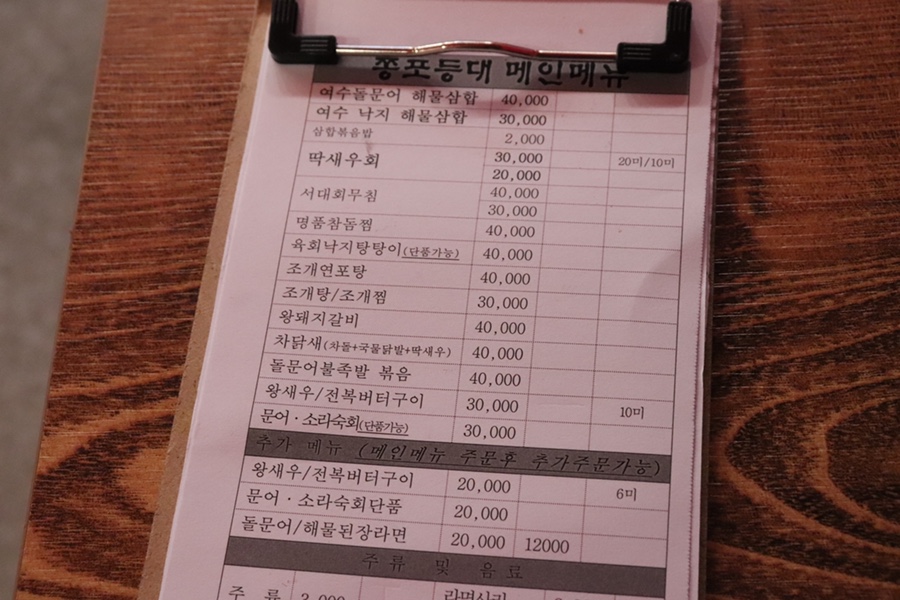 쫑포등대 메인메뉴
여수돌문어 해물삼합 40,000
여수 낙지 해물삼합 30,000
삼합볶음밥 2,000
딱새우회 30,000 20미/10미
20,000
서대회무침 40,000
30,000
명품참돔찜 40,000
육회낙지탕탕이(단품가능) 40,000
조개연포탕 40,000
조개탕/조개찜 30,000
왕돼지갈비 40,000
차닭새(차돌+국물닭발+딱새우) 40,000
돌문어불족발 볶음 40,000
왕새우/전복버터구이 30,000 10미
문어·소라숙회(단품가능) 30,000
추가 메뉴 (메인메뉴 주문후 추가주문가능)
왕새우/전복버터구이 20,000 6미
문어·소라숙회단품 20,000
돌문어/해물된장라면 20,000 12000
주류 및 음료
주 류 라면사리